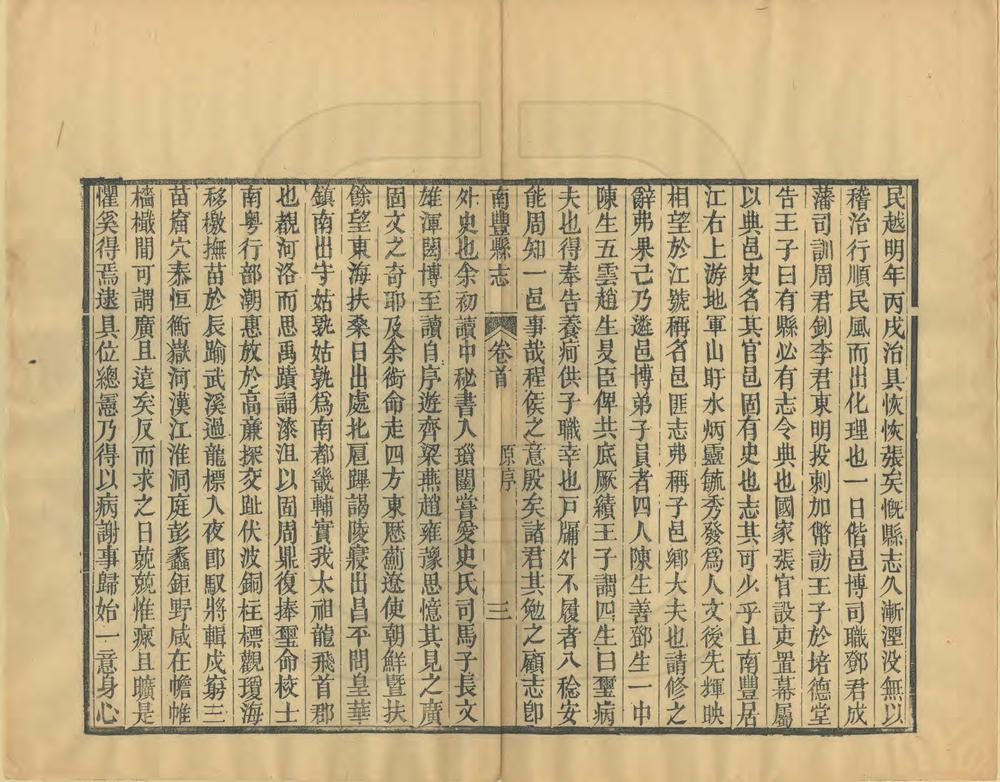 民越明年丙戌治具恢恢張矣慨縣志久漸湮没無以
稽治行順民風而出化理也一日偕邑博司職鄧君成
藩司訓周君釗李君東明投刺加幣訪王子於培德堂
告王子曰有縣必有志令典也國家張官設吏置幕屬
以典邑史名其官邑固有史也志其可少乎且南豐居
江右上游地軍山盱水炳靈毓秀發爲人文後先輝映
相望於江號稱名邑匪志弗稱子邑鄉大夫也請修之
辭弗果己乃遴邑博弟子員者四人陳生善鄧生一中
陳生五雲趙生旻臣俾共底厥績王子謂四生曰璽病
夫也得奉告養痾供子職幸也戸牖外不履者八稔安
能周知一邑事哉程侯之意殷矣諸君其勉之顧志卽
南豐縣志 卷首 原序 三
外史也余初讀中秘書入瑣闥嘗愛史氏司馬子長文
雄渾閎博至讀自序遊齊梁燕趙雍豫思憶其見之廣
固文之奇耶及余銜命走四方東歴薊遼使朝鮮暨扶
餘望東海扶桑日出處北扈蹕謁陵寢出昌平問皇華
鎮南出守姑孰姑孰爲南都畿輔實我太祖龍飛首郡
也覩河洛而思禹蹟誦漆沮以固周鼎復捧璽命校士
南粵行部潮惠放於高亷探交趾伏波銅柱標觀瓊海
移檄撫苗於辰踰武溪過龍標入夜郎馭將輯戍窮三
苗窟穴泰恒衡嶽河漢江淮洞庭彭蠡鉅野咸在幨帷
檣檝間可謂廣且遠矣反而求之日兢兢惟瘝且曠是
懼奚得焉逮具位總憲乃得以病謝事歸始一意身心